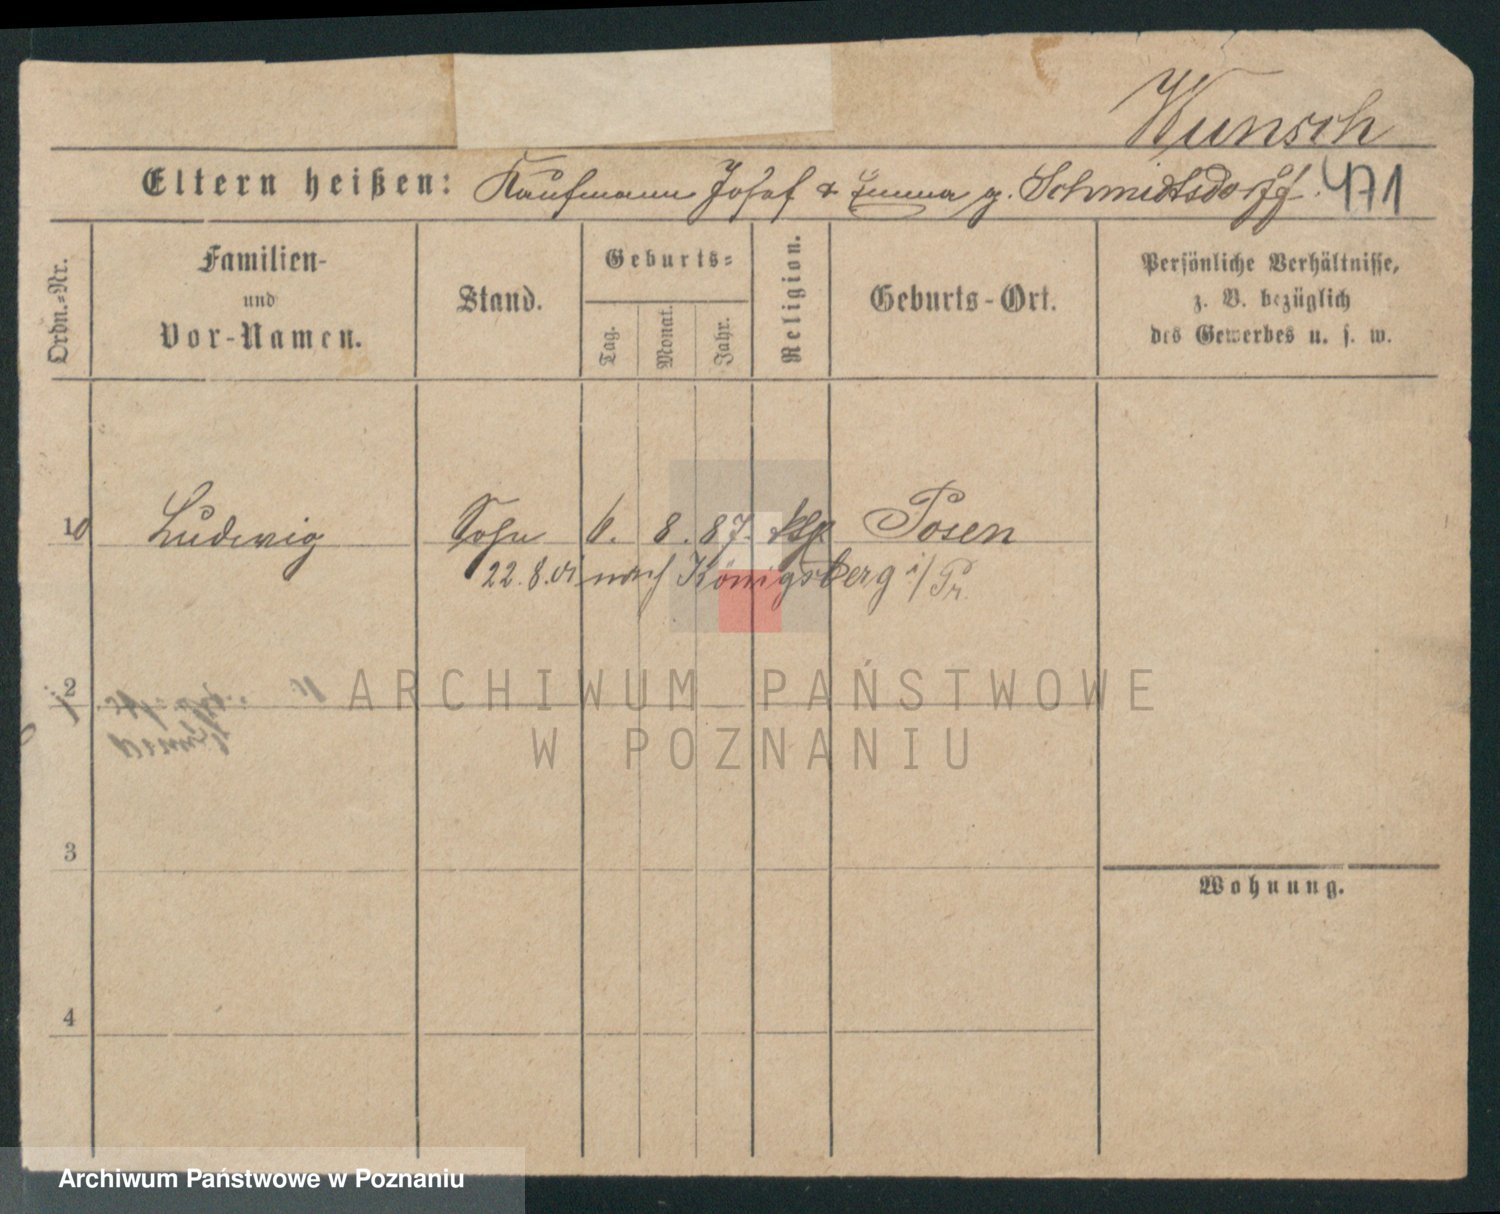 Wunsch
Eltern heißen: Kaufmann Josef & Emma g. Schmidtsdorff. 471
Ordn.=Nr.
Familien-
und
Vor-Namen.
Stand.
Geburts=
Tag.
Monat.
Jahr.
Religion.
Geburts-Ort.
Persönliche Verhältnisse,
z. B. bezüglich
des Gewerbes u. s. w.
10 Ludwig Sohn 6. 8. 87. Posen
22.8.01 nach Königsberg i/Pr.
2
3
4
Wohnung.
ARCHIWUM PAŃSTWOWE
W POZNANIU
Archiwum Państwowe w Poznaniu